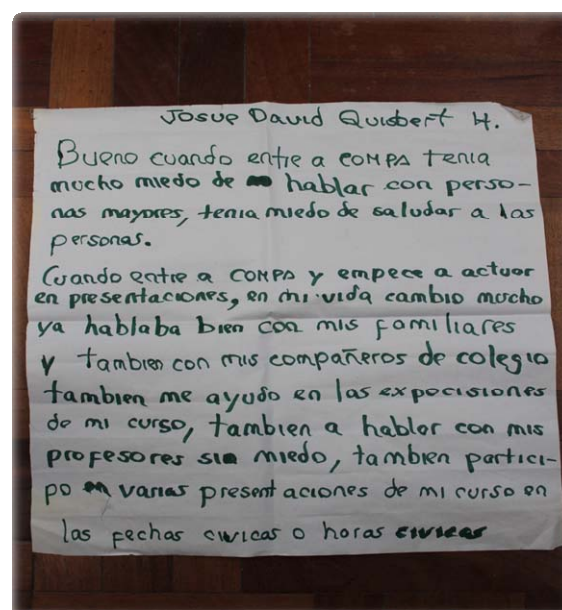 Josue David Quisbert H.
Bueno cuando entre a COMPA tenia
mucho miedo de hablar con perso-
nas mayores, tenia miedo de saludar a las
personas.
Cuando entre a COMPA y empece a actuar
en presentaciones, en mi vida cambio mucho
ya hablaba bien con mis familiares
y tambien con mis compañeros de colegio
tambien me ayudo en las expocisiones
de mi curso, tambien a hablar con mis
profesores sin miedo, tambien partici-
po en varias presentaciones de mi curso en
las fechas civicas o horas civicas